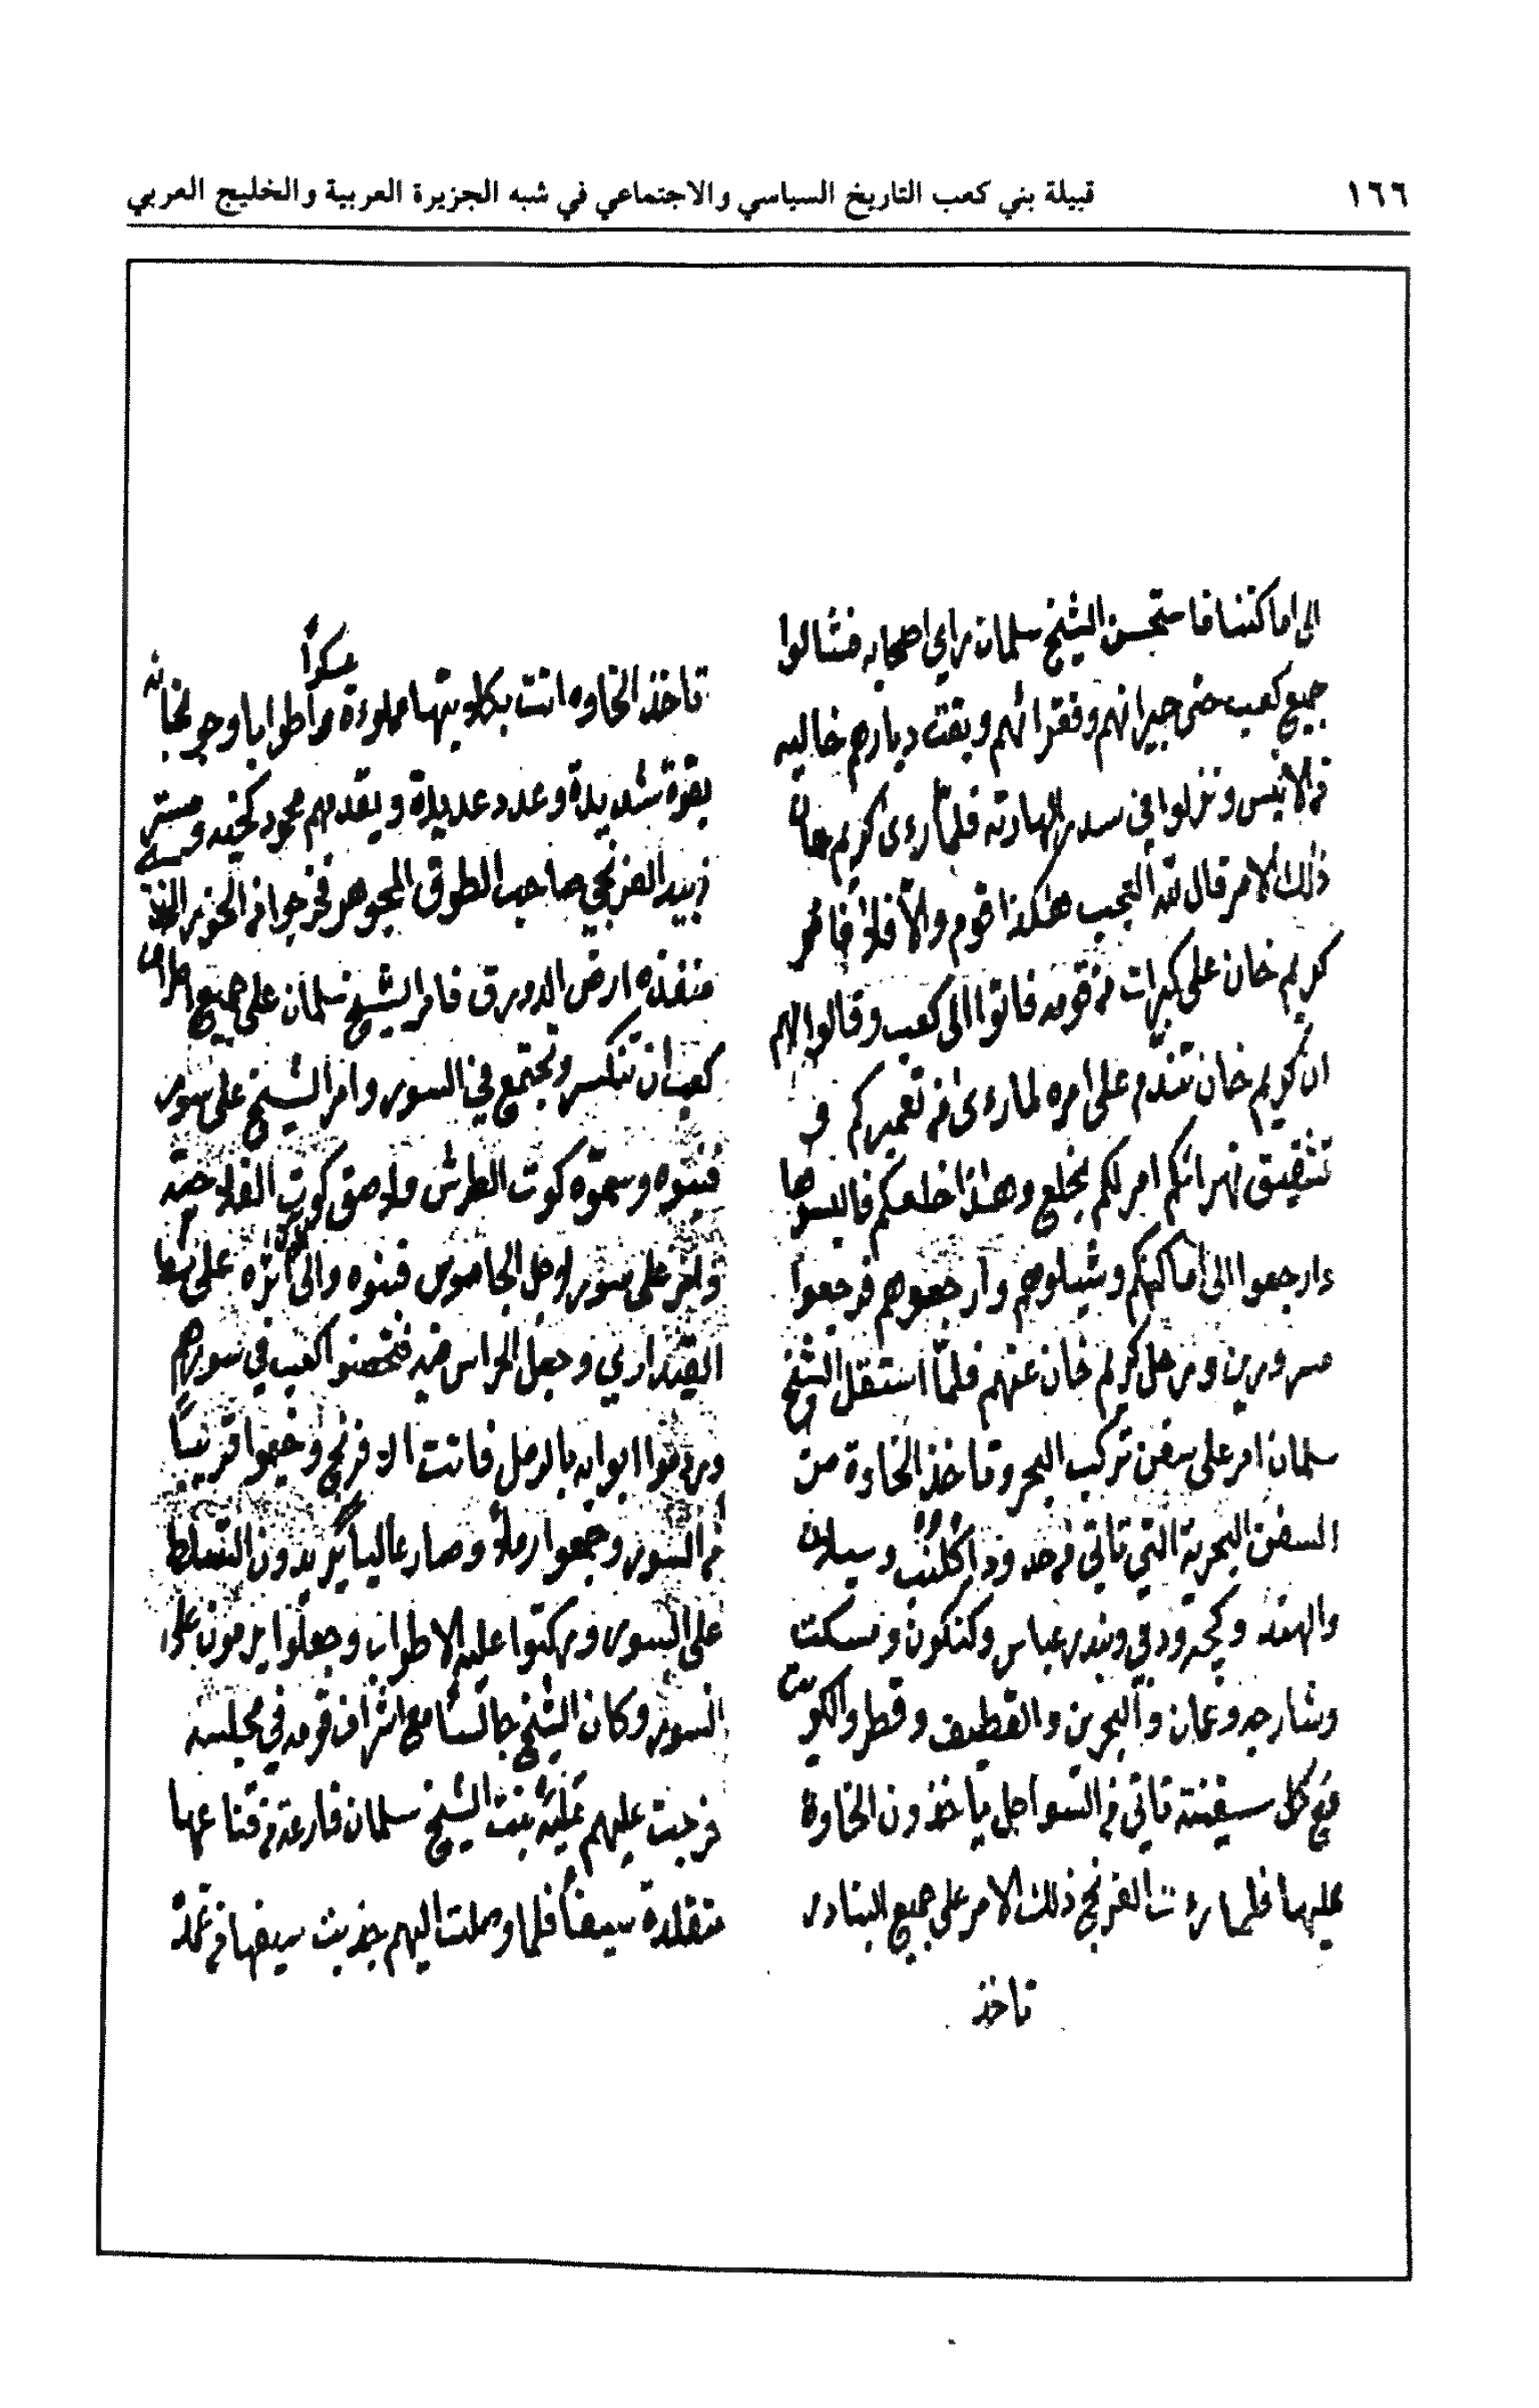 ١٦٦
قبيلة بني كعب التاريخ السياسي والاجتماعي في شبه الجزيرة العربية والخليج العربي
الى اماكننا فاستحسن الشيخ سلمان راي اصحابه فشالوا
جميع كعب حتى جيرانهم وفقرائهم وبقت ديارهم خاليه
من الانيس ونزلوا في سدر فلما رءى كريم خان
ذلك الامر قال لله التعجب هكذا قوم والا فلا فامر
كريم خان على من قومه فاتوا الى كعب وقالوا لهم
ان كريم خان تندم على امره لما رءى من تعميركم و
تشقيق نهرانكم امر لكم بخلع وهذا خلعكم فالبسوها
وارجعوا الى اماكنكم وشيلوهم وارجعوهم فرجعوا
مسرورين ورحل كريم خان عنهم فلما استقل الشيخ
سلمان امر على سفن تركب البحر وتاخذ الخاوة من
السفن البحرية التي تاتي من حدود وسيلان
والهند وكنكون ومسكت
وشارجه وعمان والبحرين والقطيف وقطر والكويت
فمع كل سفينة تاتي من السواحل ياخذون الخاوة
عليها فلما رءت الفرنج ذلك الامر على جميع البنادر
تاخذ
تاخذ الخاوه اتت مملوءة عسكراً واطوابا وجو نجانه
بقوة شديدة وعدد عديدة ويقدمهم محمود كيخيه ومستر
زبيد الفرنجي صاحب الطوق المجوهر فخرجوا من الخور
منفذه ارض الدورق فامر الشيخ سلمان على جميع اطراف
كعب ان تنكس وتجتمع في السور وامر الشيخ على سور
فبنوه وسموه كوت الطرش ولاصق كوت الفلاحيه
وامر على سور لاجل الجاموس فبنوه والى اثره على
القيداري وجعل الحراس فيه فتحصنوا كعب في سورهم
وردموا ابوابه بالرمل فاتت الافرنج وخيموا قريباً
من السور وجمعوا رملا وصار عالياً يريدون التسلط
على السور وركبوا عليه الاطواب وجعلوا يرمون على
السور وكان الشيخ جالسا مع اشراف قومه في مجلسه
خرجت عليهم بنت الشيخ سلمان فارعة من قناعها
متقلدة سيفاً فلما وصلت اليهم جذبت سيفها من غمده